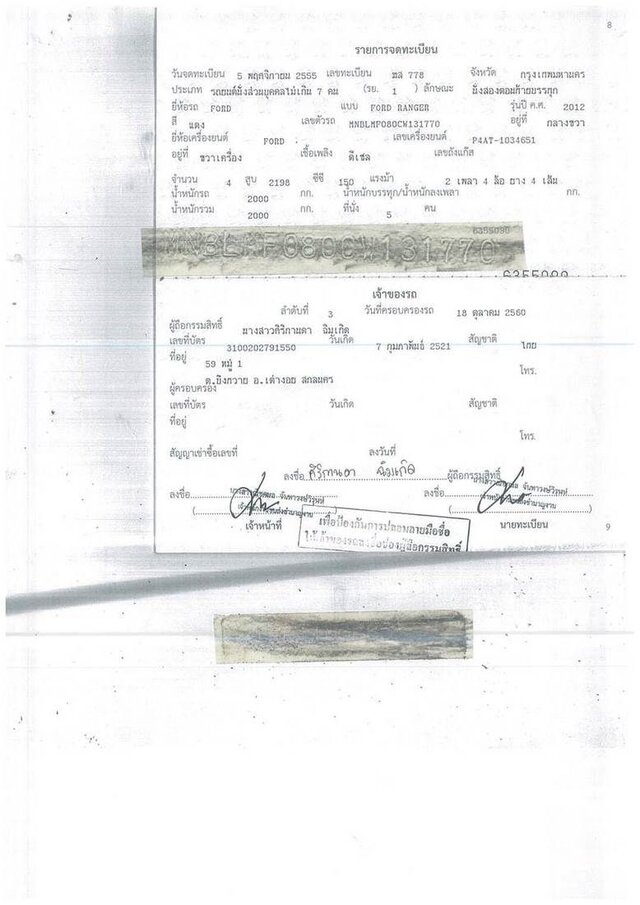 8
รายการจดทะเบียน
วันจดทะเบียน 5 พฤศจิกายน 2555 เลขทะเบียน ฆส 778 จังหวัด กรุงเทพมหานคร
ประเภท รถยนต์นั่งส่วนบุคคลไม่เกิน 7 คน (รย. 1 ) ลักษณะ นั่งสองตอนท้ายบรรทุก
ยี่ห้อรถ FORD แบบ FORD RANGER รุ่นปี ค.ศ. 2012
สี แดง เลขตัวรถ MNBLMF080CW131770 อยู่ที่ กลางขวา
ยี่ห้อเครื่องยนต์ FORD เลขเครื่องยนต์ P4AT-1034651
อยู่ที่ ขวาเครื่อง เชื้อเพลิง ดีเซล เลขถังแก๊ส
จำนวน 4 สูบ 2198 ซีซี 150 แรงม้า 2 เพลา 4 ล้อ ยาง 4 เส้น
น้ำหนักรถ 2000 กก. น้ำหนักบรรทุก/น้ำหนักลงเพลา กก.
น้ำหนักรวม 2000 กก. ที่นั่ง 5 คน
6355090
MNBLMF080CW131770
6355090
เจ้าของรถ
ลำดับที่ 3 วันที่ครอบครองรถ 18 ตุลาคม 2560
ผู้ถือกรรมสิทธิ์ นางสาวศิริกานดา ฉิมเกิด
เลขที่บัตร 3100202791550 วันเกิด 7 กุมภาพันธ์ 2521 สัญชาติ ไทย
ที่อยู่ 59 หมู่ 1 โทร.
ต.บึงทวาย อ.เต่างอย สกลนคร
ผู้ครอบครอง
เลขที่บัตร วันเกิด สัญชาติ
ที่อยู่
โทร.
สัญญาเช่าซื้อเลขที่ ลงวันที่
ลงชื่อ ศิริกานดา ฉิมเกิด ผู้ถือกรรมสิทธิ์
ลงชื่อ ลงชื่อ
เจ้าหน้าที่ นายทะเบียน
เพื่อป้องกันการปลอมลายมือชื่อ
ให้เจ้าของรถลงชื่อช่องผู้ถือกรรมสิทธิ์
9